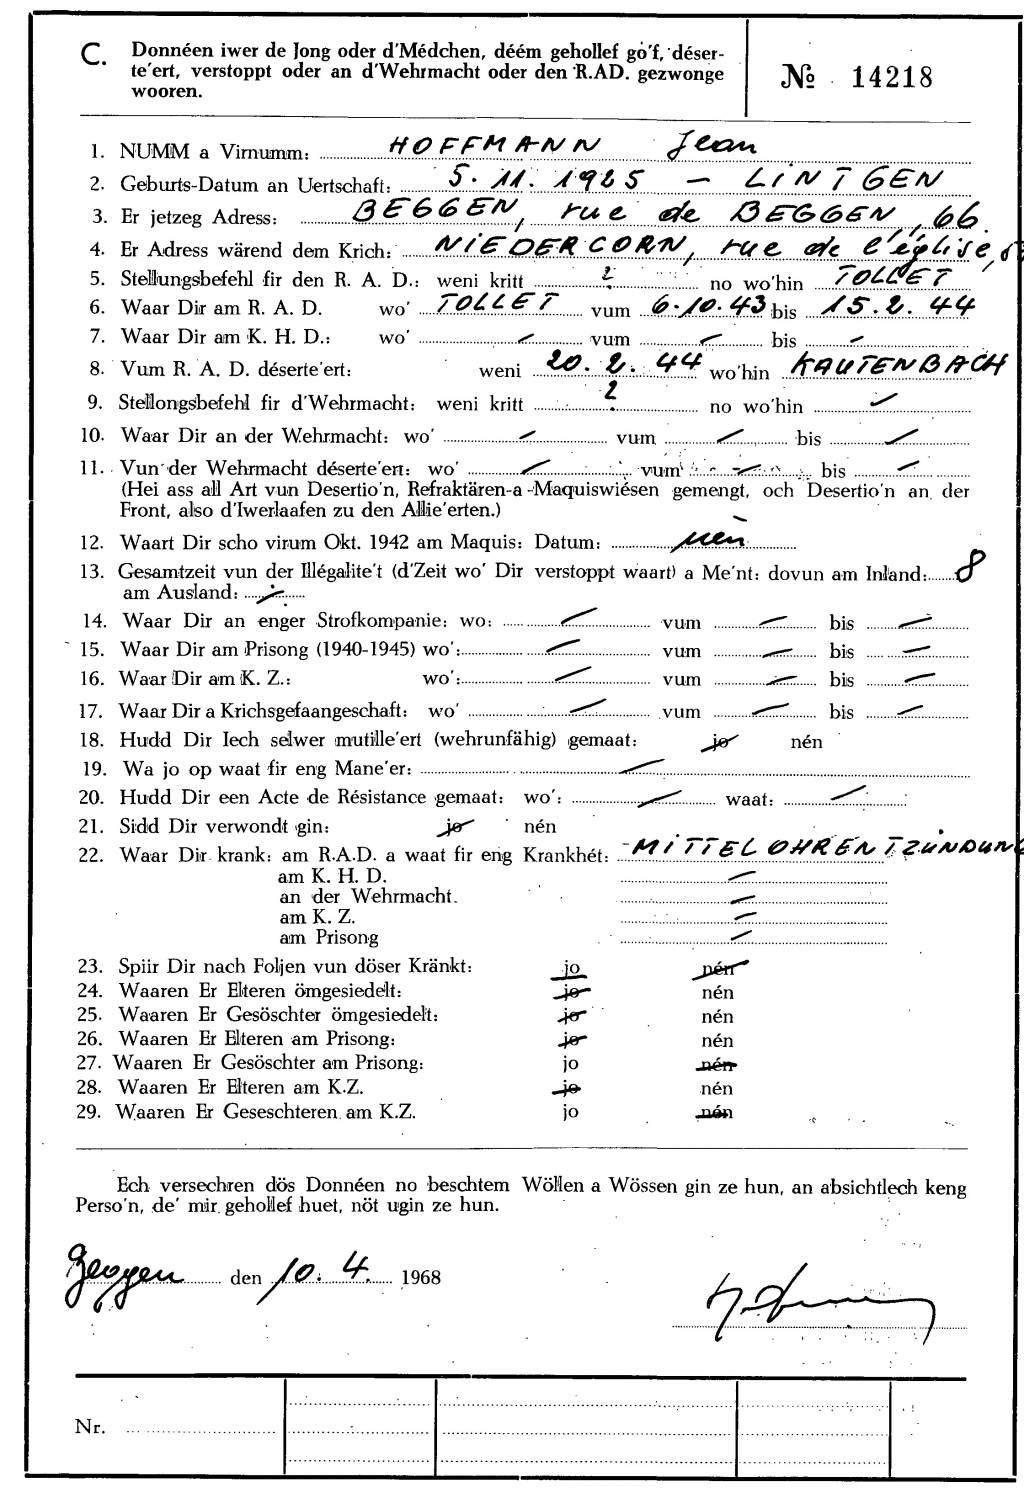 C. Donnéen iwer de Jong oder d'Médchen, déém gehollef go'f, déser-
te'ert, verstoppt oder an d'Wehrmacht oder den R.AD. gezwonge
wooren.
№ 14218
1. NUMM a Virnumm: HOFFMANN Jean
2. Geburts-Datum an Uertschaft: 5. 11. 1925 — LINTGEN
3. Er jetzeg Adress: BEGGEN, rue de BEGGEN, 66
4. Er Adress wärend dem Krich: NIEDERCORN, rue de l'église,
5. Stellungsbefehl fir den R. A. D.: weni kritt ? no wo'hin TOLLET
6. Waar Dir am R. A. D. wo' TOLLET vum 6.10.43 bis 15.2.44
7. Waar Dir am K. H. D.: wo' — vum — bis —
8. Vum R. A. D. déserte'ert: weni 20. 2. 44 wo'hin KAUTENBACH
9. Stellongsbefehl fir d'Wehrmacht: weni kritt ? no wo'hin —
10. Waar Dir an der Wehrmacht: wo' — vum — bis —
11. Vun der Wehrmacht déserte'ert: wo' — vum — bis —
(Hei ass all Art vun Desertio'n, Refraktären-a-Maquiswiésen gemengt, och Desertio'n an der
Front, also d'Iwerlaafen zu den Allie'erten.)
12. Waart Dir scho virum Okt. 1942 am Maquis: Datum: nèn
13. Gesamtzeit vun der Illégalite't (d'Zeit wo' Dir verstoppt waart) a Me'nt: dovun am Inland: 8
am Ausland: —
14. Waar Dir an enger Strofkompanie: wo: — vum — bis —
15. Waar Dir am Prisong (1940-1945) wo': — vum — bis —
16. Waar Dir am K. Z.: wo': — vum — bis —
17. Waar Dir a Krichsgefaangeschaft: wo' — vum — bis —
18. Hudd Dir Iech selwer mutille'ert (wehrunfähig) gemaat: jo nén
19. Wa jo op waat fir eng Mane'er: —
20. Hudd Dir een Acte de Résistance gemaat: wo': — waat: —
21. Sidd Dir verwondt gin: jo nén
22. Waar Dir krank: am R.A.D. a waat fir eng Krankhét: MITTELOHRENTZÜNDUNG
am K. H. D. —
an der Wehrmacht. —
am K. Z. —
am Prisong —
23. Spiir Dir nach Foljen vun döser Kränkt: jo nén
24. Waaren Er Elteren ömgesiedelt: jo nén
25. Waaren Er Gesöschter ömgesiedelt: jo nén
26. Waaren Er Elteren am Prisong: jo nén
27. Waaren Er Gesöschter am Prisong: jo nén
28. Waaren Er Elteren am K.Z. jo nén
29. Waaren Er Geseschteren am K.Z. jo nén
Ech versechren dös Donnéen no beschtem Wöllen a Wössen gin ze hun, an absichtlech keng
Perso'n, de' mir gehollef huet, nöt ugin ze hun.
Beggen den 10. 4. 1968
Nr.